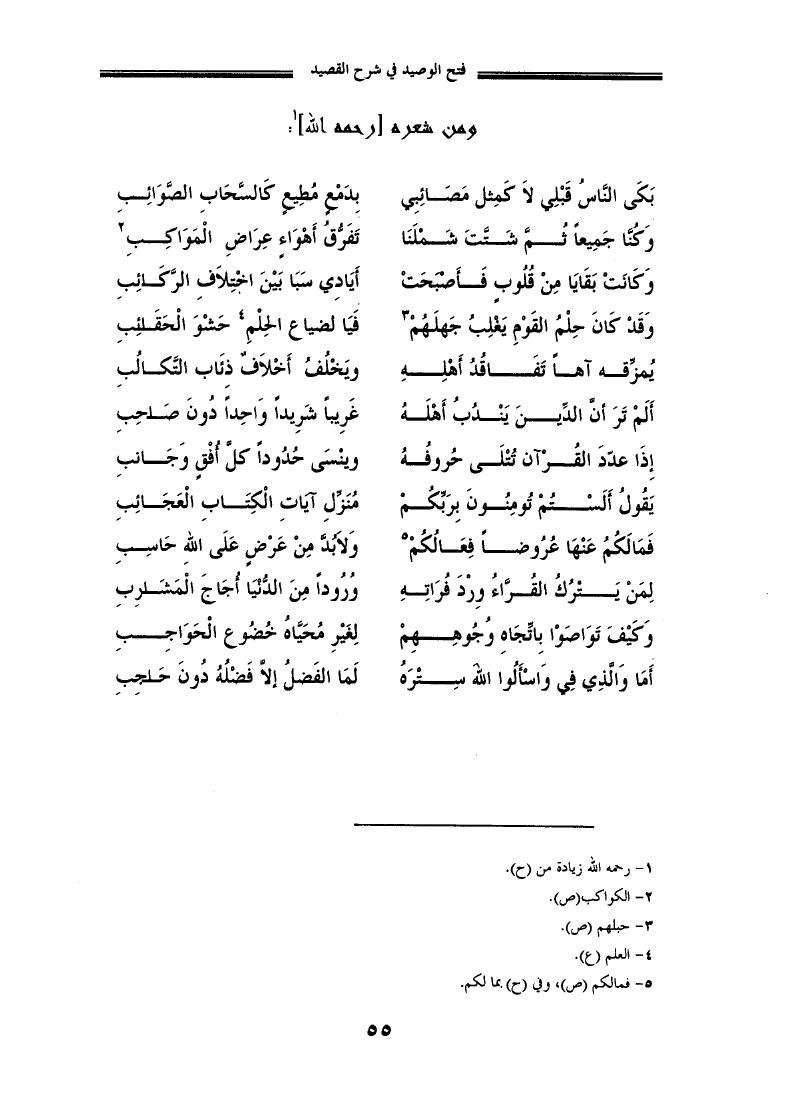 فتح الوصيد في شرح القصيد
ومن شعره [رحمه الله]١:
بَكَى النَّاسُ قَبْلِي لاَ كَمِثلِ مَصَائِبِي بِدَمْعٍ مُطِيعٍ كَالسَّحَابِ الصَّوَائِبِ
وَكُنَّا جَمِيعاً ثُمَّ شَتَّتَ شَمْلَنَا تَفَرُّقُ أَهْوَاءٍ عِرَاضِ الْمَوَاكِبِ٢
وَكَانَتْ بَقَايَا مِنْ قُلُوبٍ فَأَصْبَحَتْ أَيَادي سَبَا بَيْنَ اخْتِلاَفِ الرَّكَائِبِ
وَقَدْ كَانَ حِلْمُ القَوْمِ يَغْلِبُ جَهْلَهُمْ٣ فَيَا لضياع الحِلْمِ٤ حَشْوَ الْحَقَائِبِ
يُمزِّقه آهاً تَفَاقُدُ أَهْلِهِ وَيَخْلُفُ أَخْلاَفٌ ذئَابَ التَّكَالُبِ
أَلَمْ تَرَ أَنَّ الدِّينَ يَنْدُبُ أَهْلَهُ غَرِيباً شَرِيداً وَاحِداً دُونَ صَاحِبِ
إِذَا عدّدَ القُرآن تُتْلَى حُرُوفُهُ وينْسَى حُدُوداً كلَّ أُفْقٍ وَجَانبِ
يَقُولُ أَلَسْتُمْ تُومِنُونَ بِرَبِّكُمْ مُنَزِّلِ آيَاتِ الْكِتَابِ العَجَائِبِ
فَمَالَكُمُ عَنْهَا عُرُوضاً فِعَالُكُمْ٥ وَلاَبُدَّ مِنْ عَرْضٍ عَلَى الله حَاسِبِ
لِمَنْ يَتْرُكُ القُرَّاءُ وِرْدَ فُرَاتِهِ وُرُوداً مِنَ الدُّنْيَا أُجَاجَ الْمَشَارِبِ
وَكَيْفَ تَوَاصَوْا بِاتِّجَاهِ وُجُوهِهِمْ لِغَيْرِ مُحَيَّاهُ خُضُوعَ الْحَوَاجِبِ
أَمَا وَالَّذِي فِي وَاسْأَلُوا اللهَ سِتْرَهُ لَمَا الفَضْلُ إِلاَّ فَضْلُهُ دُونَ حَاجِبِ
١- رحمه الله زيادة من (ح).
٢- الكواكب(ص).
٣- حبلهم (ص).
٤- العلم (ع).
٥- فمالكم (ص)، وفي (ح) بما لكم.
٥٥